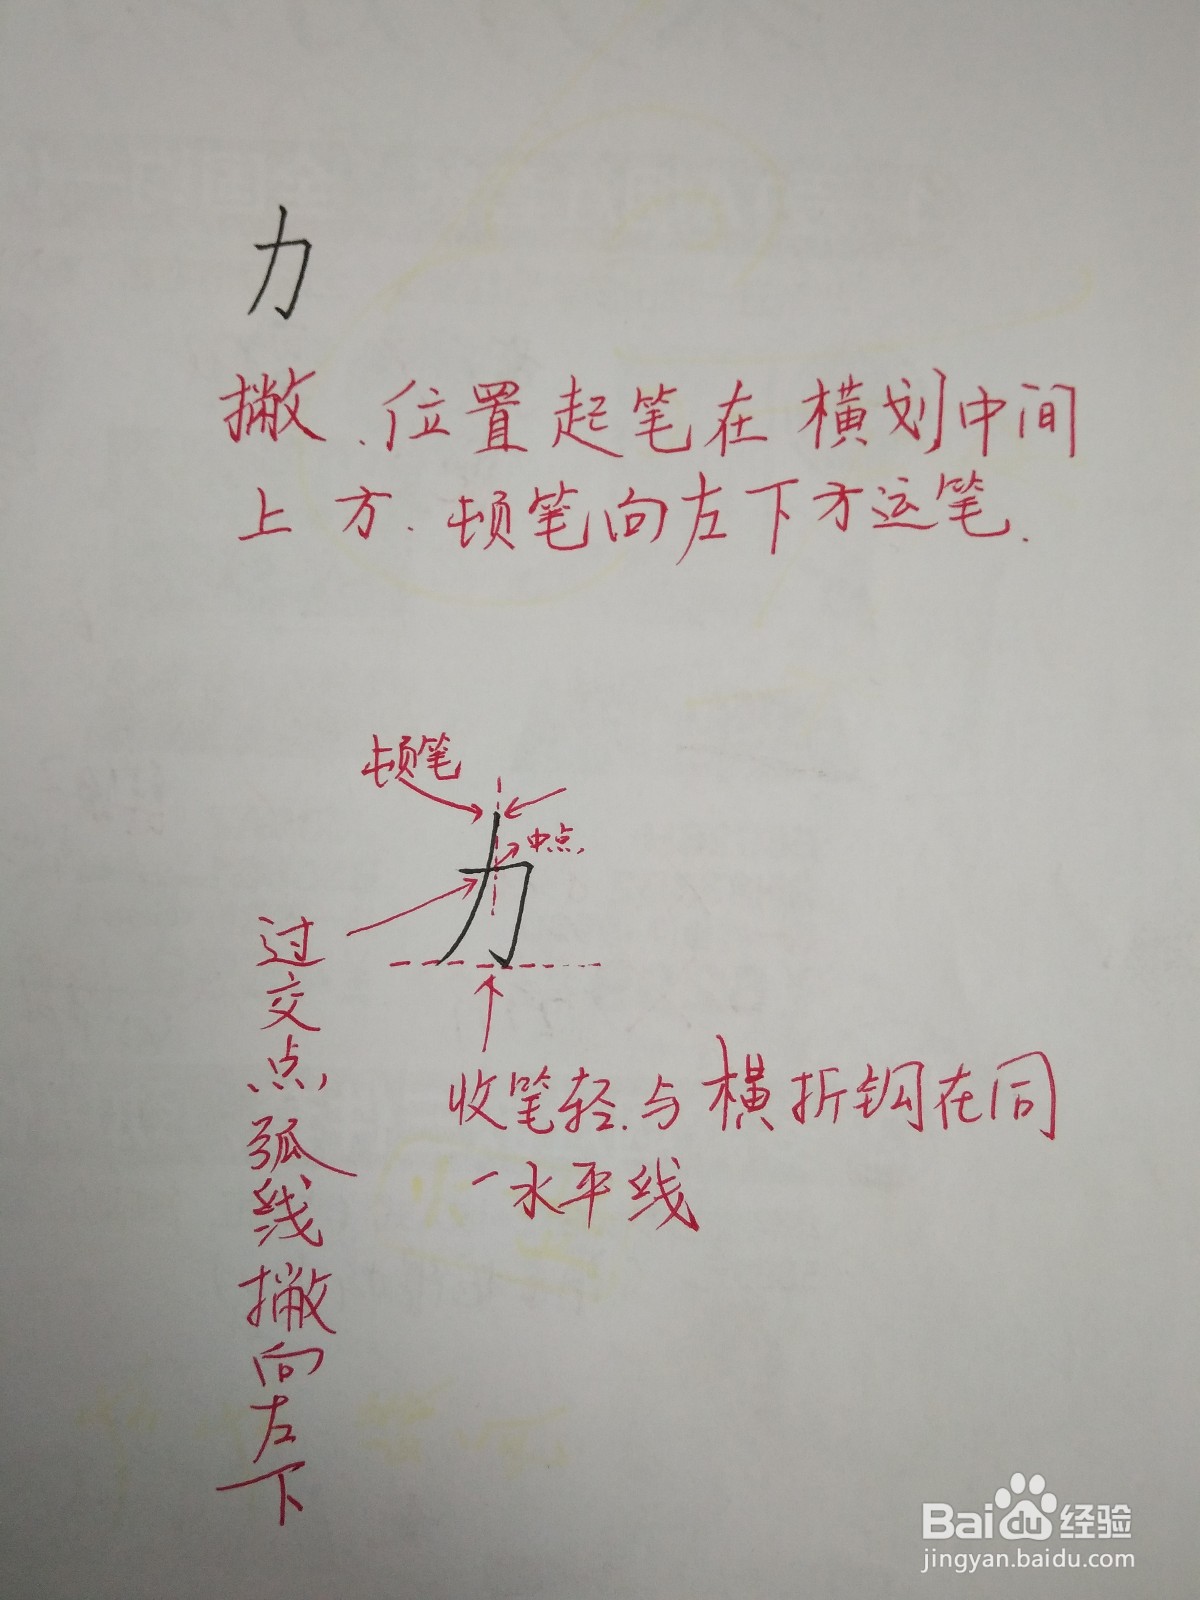 力
撇.位置起笔在横划中间
上方.顿笔向左下方运笔.
顿笔
中点
过交点弧线撇向左下
收笔轻.与横折钩在同
一水平线
Baidu经验
jingyan.baidu.com